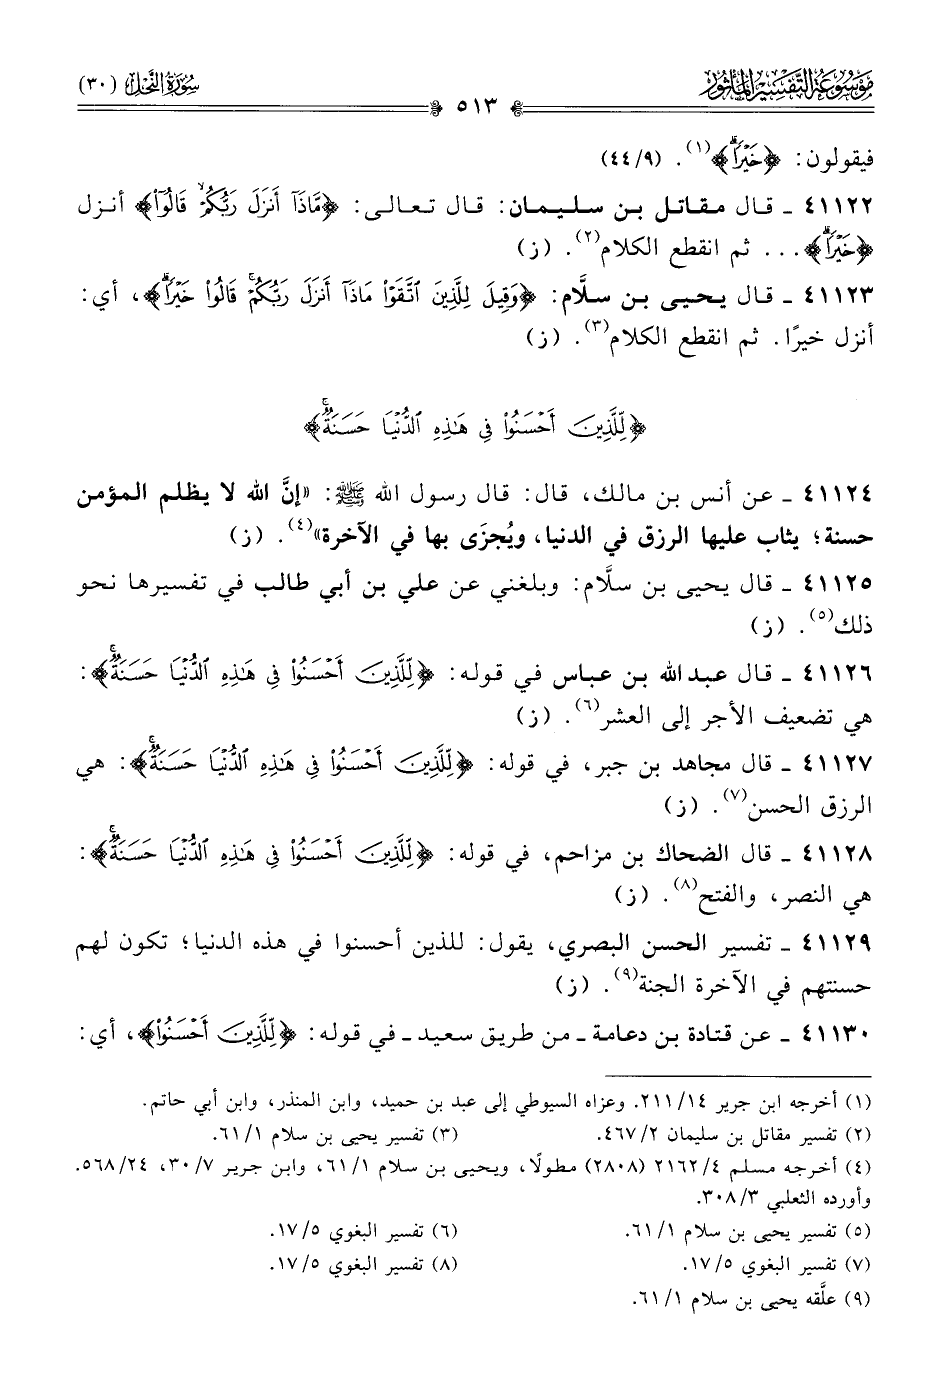 مَوْسُوعَةُ التَّفْسِيرِ المَأْثُورِ
٥١٣
سُورَةُ النَّحْلِ (٣٠)
فيقولون: ﴿خَيْرًاۗ﴾(١). (٤٤/٩)
٤١١٢٢ ـ قال مقاتل بن سليمان: قال تعالى: ﴿مَّاذَآ أَنزَلَ رَبُّكُمْۙ قَالُوٓا۟﴾ أنزل
﴿خَيْرًاۗ﴾... ثم انقطع الكلام(٢). (ز)
٤١١٢٣ ـ قال يحيى بن سلَّام: ﴿وَقِيلَ لِلَّذِينَ ٱتَّقَوْا۟ مَاذَآ أَنزَلَ رَبُّكُمْۚ قَالُوا۟ خَيْرًاۗ﴾، أي:
أنزل خيرًا. ثم انقطع الكلام(٣). (ز)
﴿لِّلَّذِينَ أَحْسَنُوا۟ فِى هَٰذِهِ ٱلدُّنْيَا حَسَنَةٌۚ﴾
٤١١٢٤ ـ عن أنس بن مالك، قال: قال رسول الله ﷺ: «إنَّ الله لا يظلم المؤمن
حسنة؛ يثاب عليها الرزق في الدنيا، ويُجزَى بها في الآخرة»(٤). (ز)
٤١١٢٥ ـ قال يحيى بن سلَّام: وبلغني عن علي بن أبي طالب في تفسيرها نحو
ذلك(٥). (ز)
٤١١٢٦ ـ قال عبد الله بن عباس في قوله: ﴿لِّلَّذِينَ أَحْسَنُوا۟ فِى هَٰذِهِ ٱلدُّنْيَا حَسَنَةٌۚ﴾:
هي تضعيف الأجر إلى العشر(٦). (ز)
٤١١٢٧ ـ قال مجاهد بن جبر، في قوله: ﴿لِّلَّذِينَ أَحْسَنُوا۟ فِى هَٰذِهِ ٱلدُّنْيَا حَسَنَةٌۚ﴾: هي
الرزق الحسن(٧). (ز)
٤١١٢٨ ـ قال الضحاك بن مزاحم، في قوله: ﴿لِّلَّذِينَ أَحْسَنُوا۟ فِى هَٰذِهِ ٱلدُّنْيَا حَسَنَةٌۚ﴾:
هي النصر، والفتح(٨). (ز)
٤١١٢٩ ـ تفسير الحسن البصري، يقول: للذين أحسنوا في هذه الدنيا؛ تكون لهم
حسنتهم في الآخرة الجنة(٩). (ز)
٤١١٣٠ ـ عن قتادة بن دعامة ـ من طريق سعيد ـ في قوله: ﴿لِّلَّذِينَ أَحْسَنُوا۟﴾، أي:
(١) أخرجه ابن جرير ٢١١/١٤. وعزاه السيوطي إلى عبد بن حميد، وابن المنذر، وابن أبي حاتم.
(٢) تفسير مقاتل بن سليمان ٤٦٧/٢.
(٣) تفسير يحيى بن سلام ٦١/١.
(٤) أخرجه مسلم ٢١٦٢/٤ (٢٨٠٨) مطولًا، ويحيى بن سلام ٦١/١، وابن جرير ٣٠/٧، ٥٦٨/٢٤.
وأورده الثعلبي ٣٠٨/٣.
(٥) تفسير يحيى بن سلام ٦١/١.
(٦) تفسير البغوي ١٧/٥.
(٧) تفسير البغوي ١٧/٥.
(٨) تفسير البغوي ١٧/٥.
(٩) علَّقه يحيى بن سلام ٦١/١.